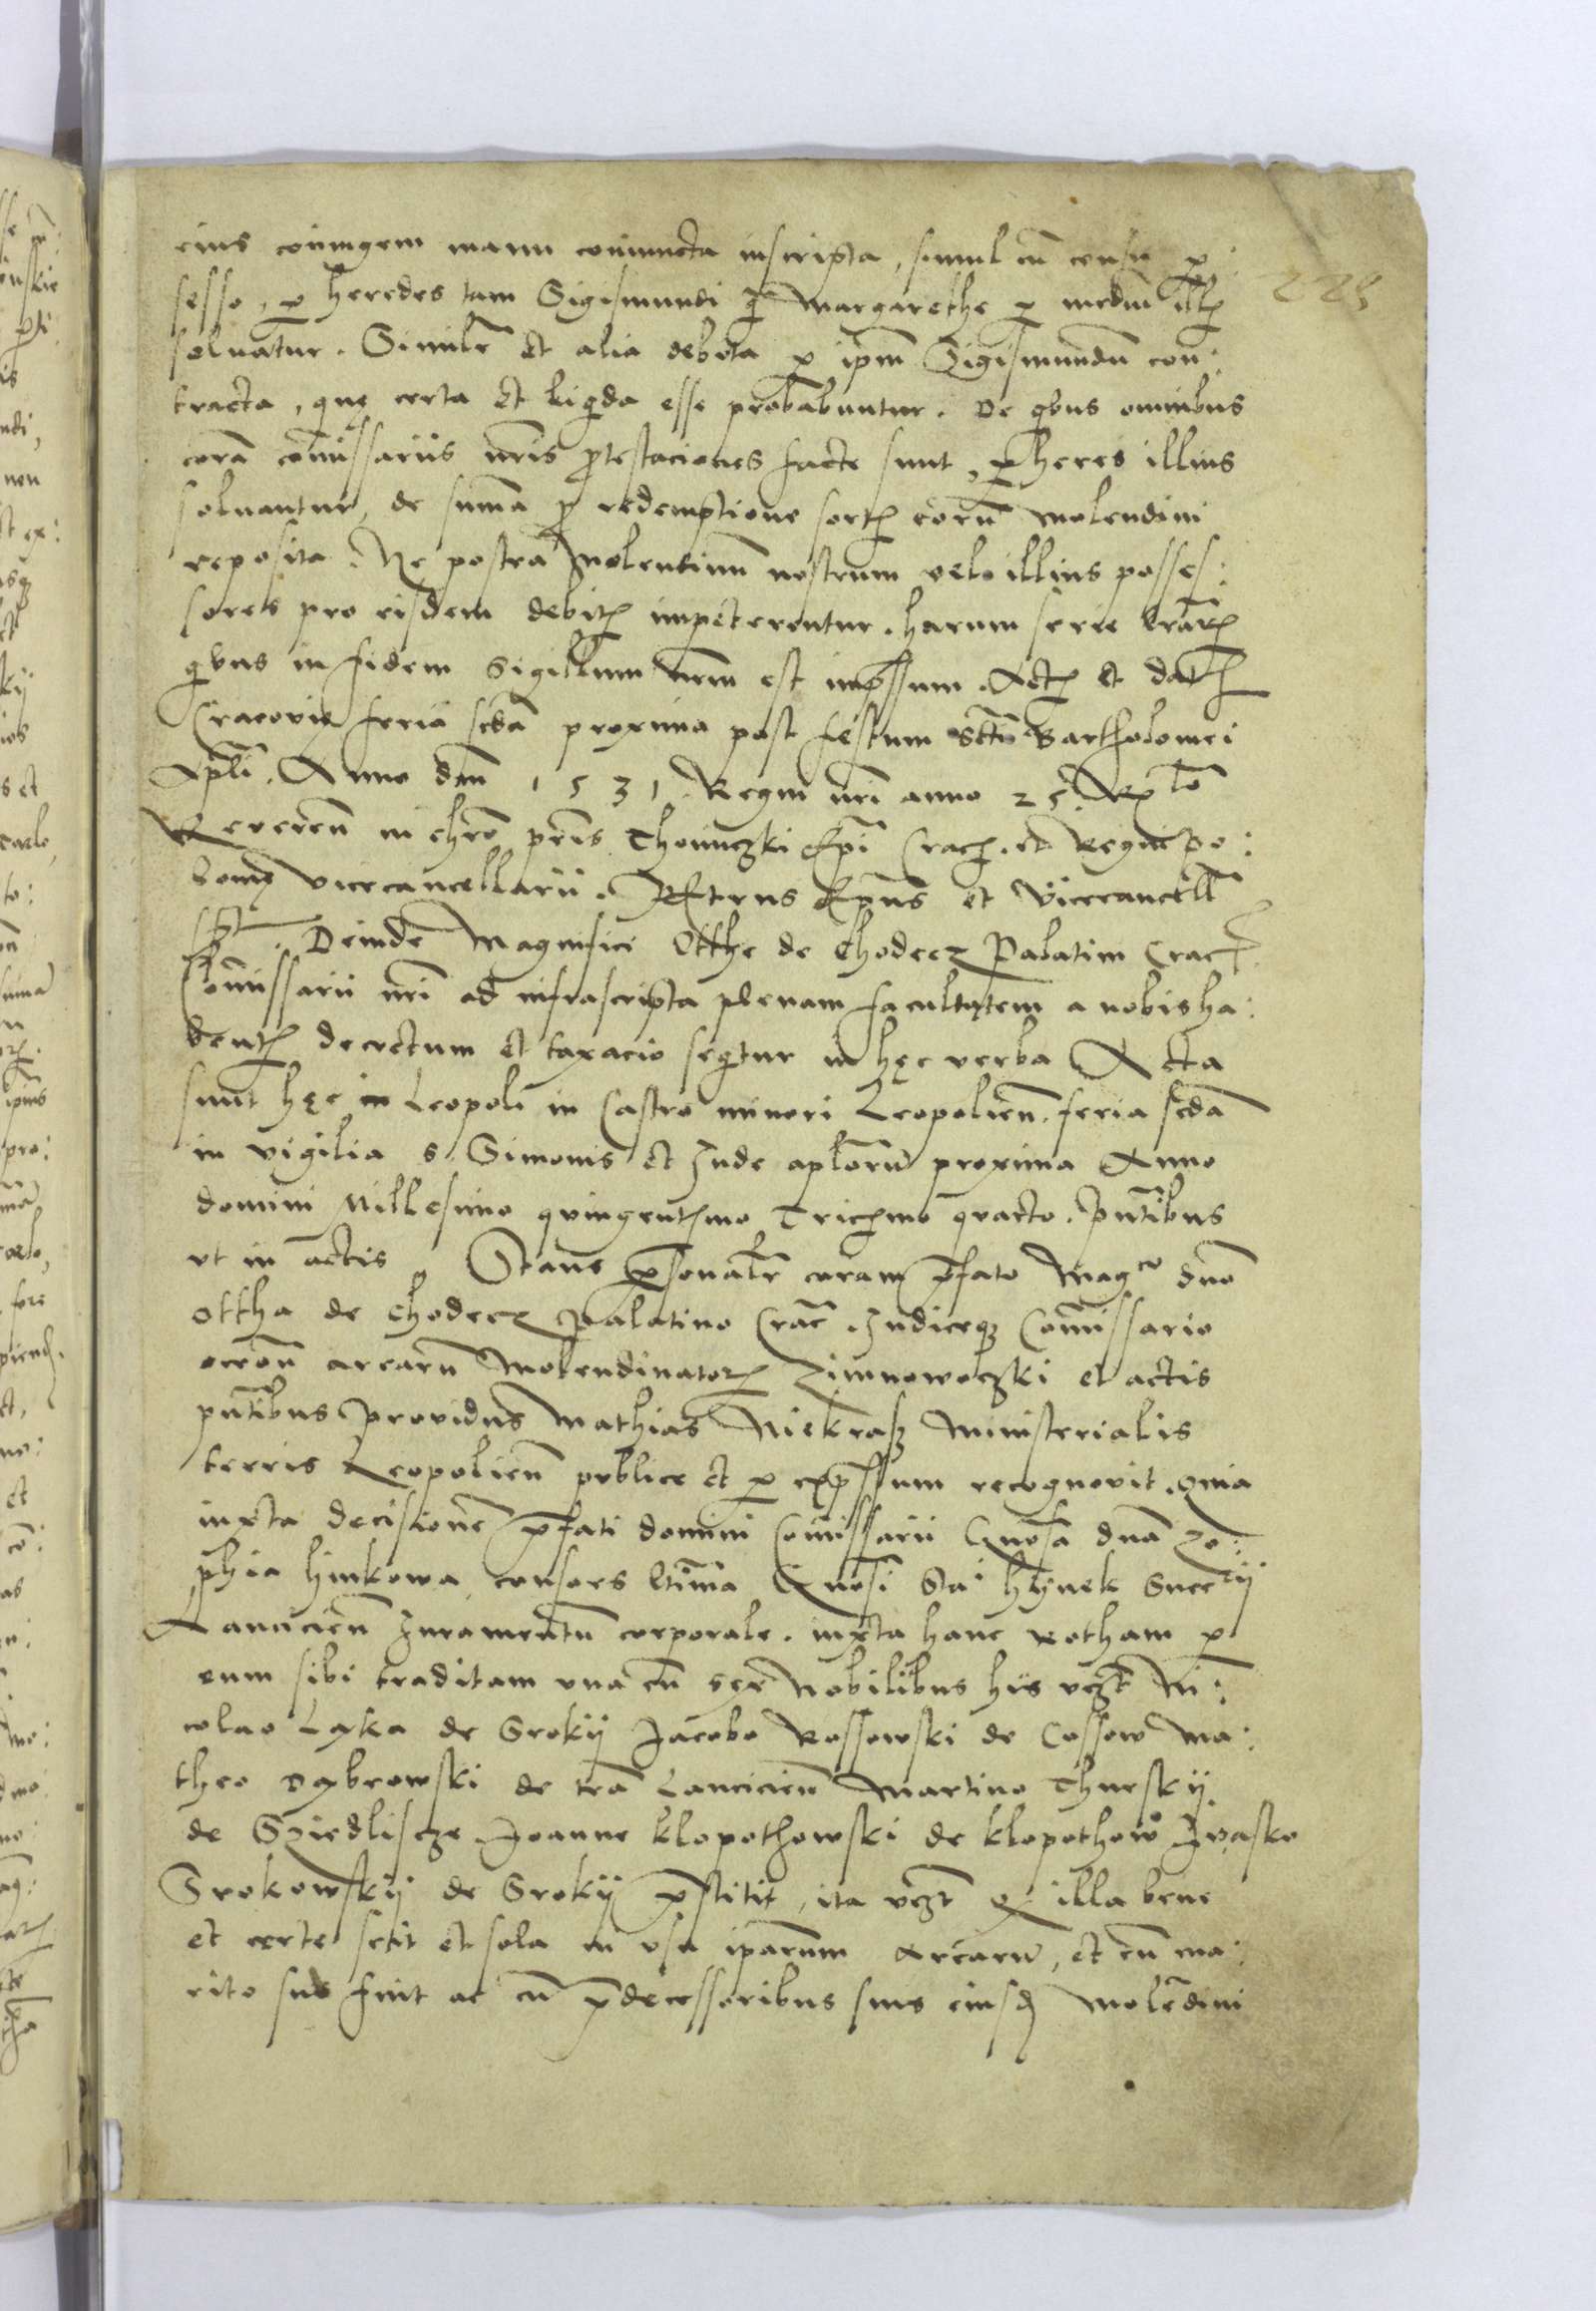 eius coniugem manu coniuncta inscripta, simul cū censu p:
sesso, p heredes tam Sigismundi q̄ Margarethe p mediū illis
225
soluatur. Similr et alia debita p ipm̄ Sigismundū con:
tracta, que certa et liqda esse probabuntur. De qbus omnibus
corā comissariis nrīs ptestaciones facte sunt, p heres illius
soluantur, de suma p redemptione sortis eorū molendini
reposita. Ne postea Molendinū nostrum velo illius posses:
sores pro eisdem debitis impeterentur. harum serie lrārū
qbus in fidem Sigillum nrm̄ est impssum. Actū et datū
Cracovie feria scdā proxima post festum Scti Bartholomei
Apli. Anno dnī 1531. Regni nrī anno 25. Rlō
Reveren in chrō pris Thomiczki Epī Crac. et Regni Po:
lonie vicecancellarii. Petrus Epūs et Vicecancell
sst. Deinde Magnifici Otthe de Chodecz Palatini Crac
Comissarii nrī ad infrascripta plenam facultatem a nobis ha:
bentis decretum et taxacio seqtur in hęc verba Acta
sunt hęc Leopoli in Castro minori Leopolien. feria scdā
in vigilia S Simonis et Iude aplorū proxima Anno
domini Millesimo quingentmo Tricmo qvarto. pntibus
ut in actis. Stans psonalr coram pfato Magco dno
Ottha de Chodecz Palatino Crac. Iudiceq Comissario
arearū Molendinatoris Zimnowoczki et actis
pntibus providus Mathias Niekrasz Ministerialis
terris Leopolien publice et p expssum recognovit. Quia
iuxta decisionē pfati domini Comissarii Gnosa dna Zo:
phia hinkowa consors ltima Gnosi Sta hynek Succ
Lancicien Iuramentū corporale. iuxta hanc Rotham p
eum sibi traditam una cū sex Nobilibus his vczt Ni:
colao Lyka de Srokij Jacobo Kossowski de Cossow Ma:
theo Dąbrowski de tra Lancicien Martino Thurskij
de Sziedlischze Joanne Klopothowski de Klopothow Jvasko
Srokowskij de Srokij pstitit, ita vczt q illa bene
et certe scit et sola in usu iparum Arearū, et cū ma:
rito suo fuit ac cū pdecessoribus suis eiusd Molēdini